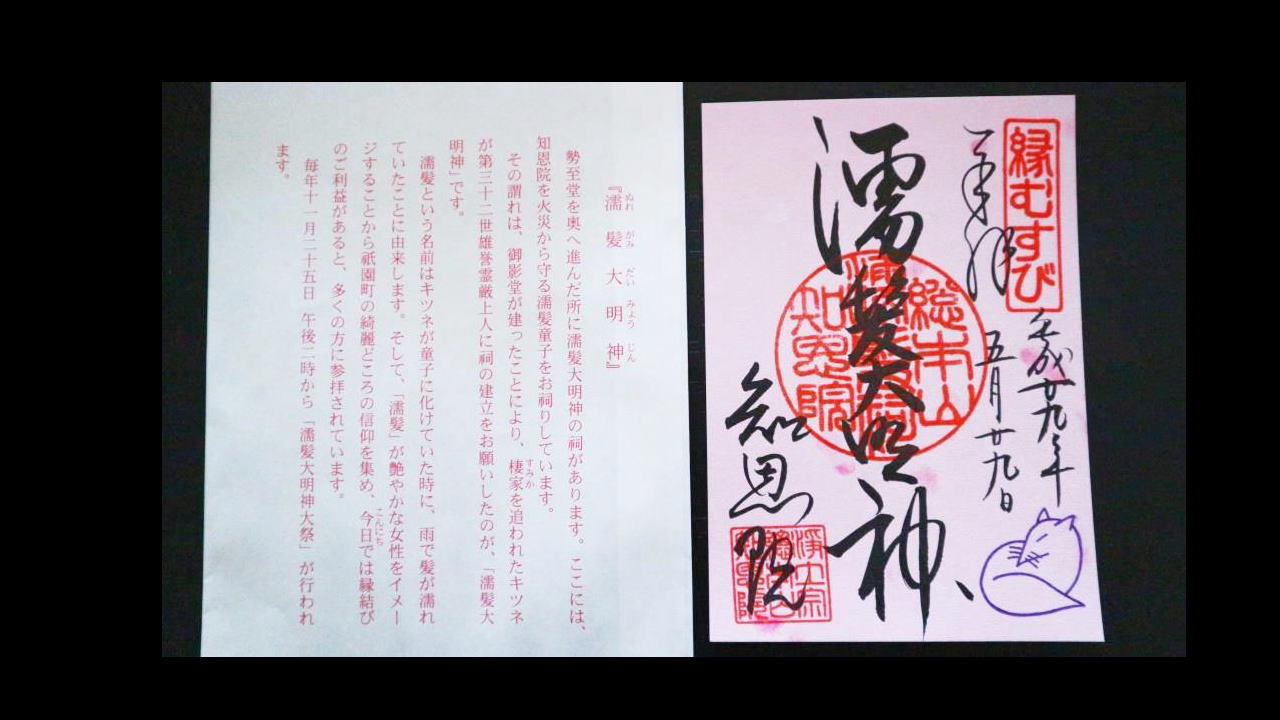 縁むすび
奉拝
平成廿九年
五月廿九日
濡髪大明神
総本山
知恩院
知恩院
浄土宗
知恩院
『濡髪大明神』
ぬれ がみ だい みょう じん
勢至堂を奥へ進んだ所に濡髪大明神の祠があります。ここには、
知恩院を火災から守る濡髪童子をお祠りしています。
その謂れは、御影堂が建ったことにより、棲家を追われたキツネ
すみか
が第三十二世雄誉霊巌上人に祠の建立をお願いしたのが、「濡髪大
明神」です。
濡髪という名前はキツネが童子に化けていた時に、雨で髪が濡れ
ていたことに由来します。そして、「濡髪」が艶やかな女性をイメー
ジすることから祇園町の綺麗どころの信仰を集め、今日では縁結び
こんにち
のご利益があると、多くの方に参拝されています。
毎年十一月二十五日 午後二時から「濡髪大明神大祭」が行われ
ます。